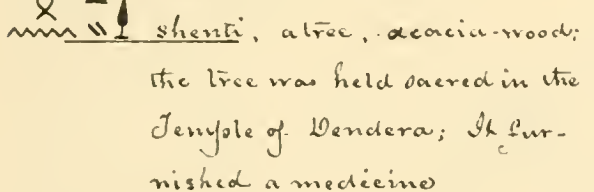 shenti, a tree, acacia-wood;
the tree was held sacred in the
Temple of Dendera; It fur-
nished a medicine